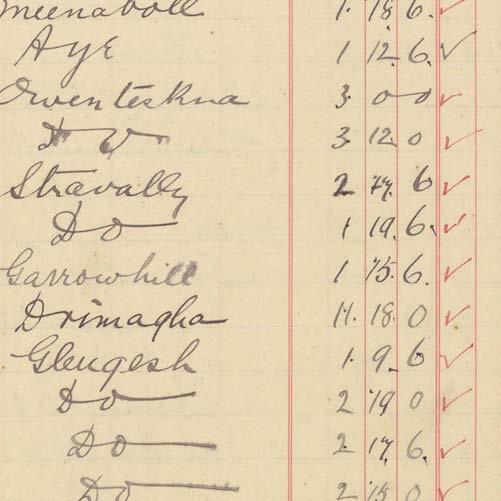 Meenaboll 1. 18 6.
Aye 1 12 6.
Owenteskna 3 0 0
Do 3 12 0
Stravally 2 17. 6
Do 1 19. 6
Garrowhill 1 15 6.
Drimagha 11. 18 0
Glengesh 1. 9. 6
Do 2 19 0
Do 2 17 6.
Do 2 15 0